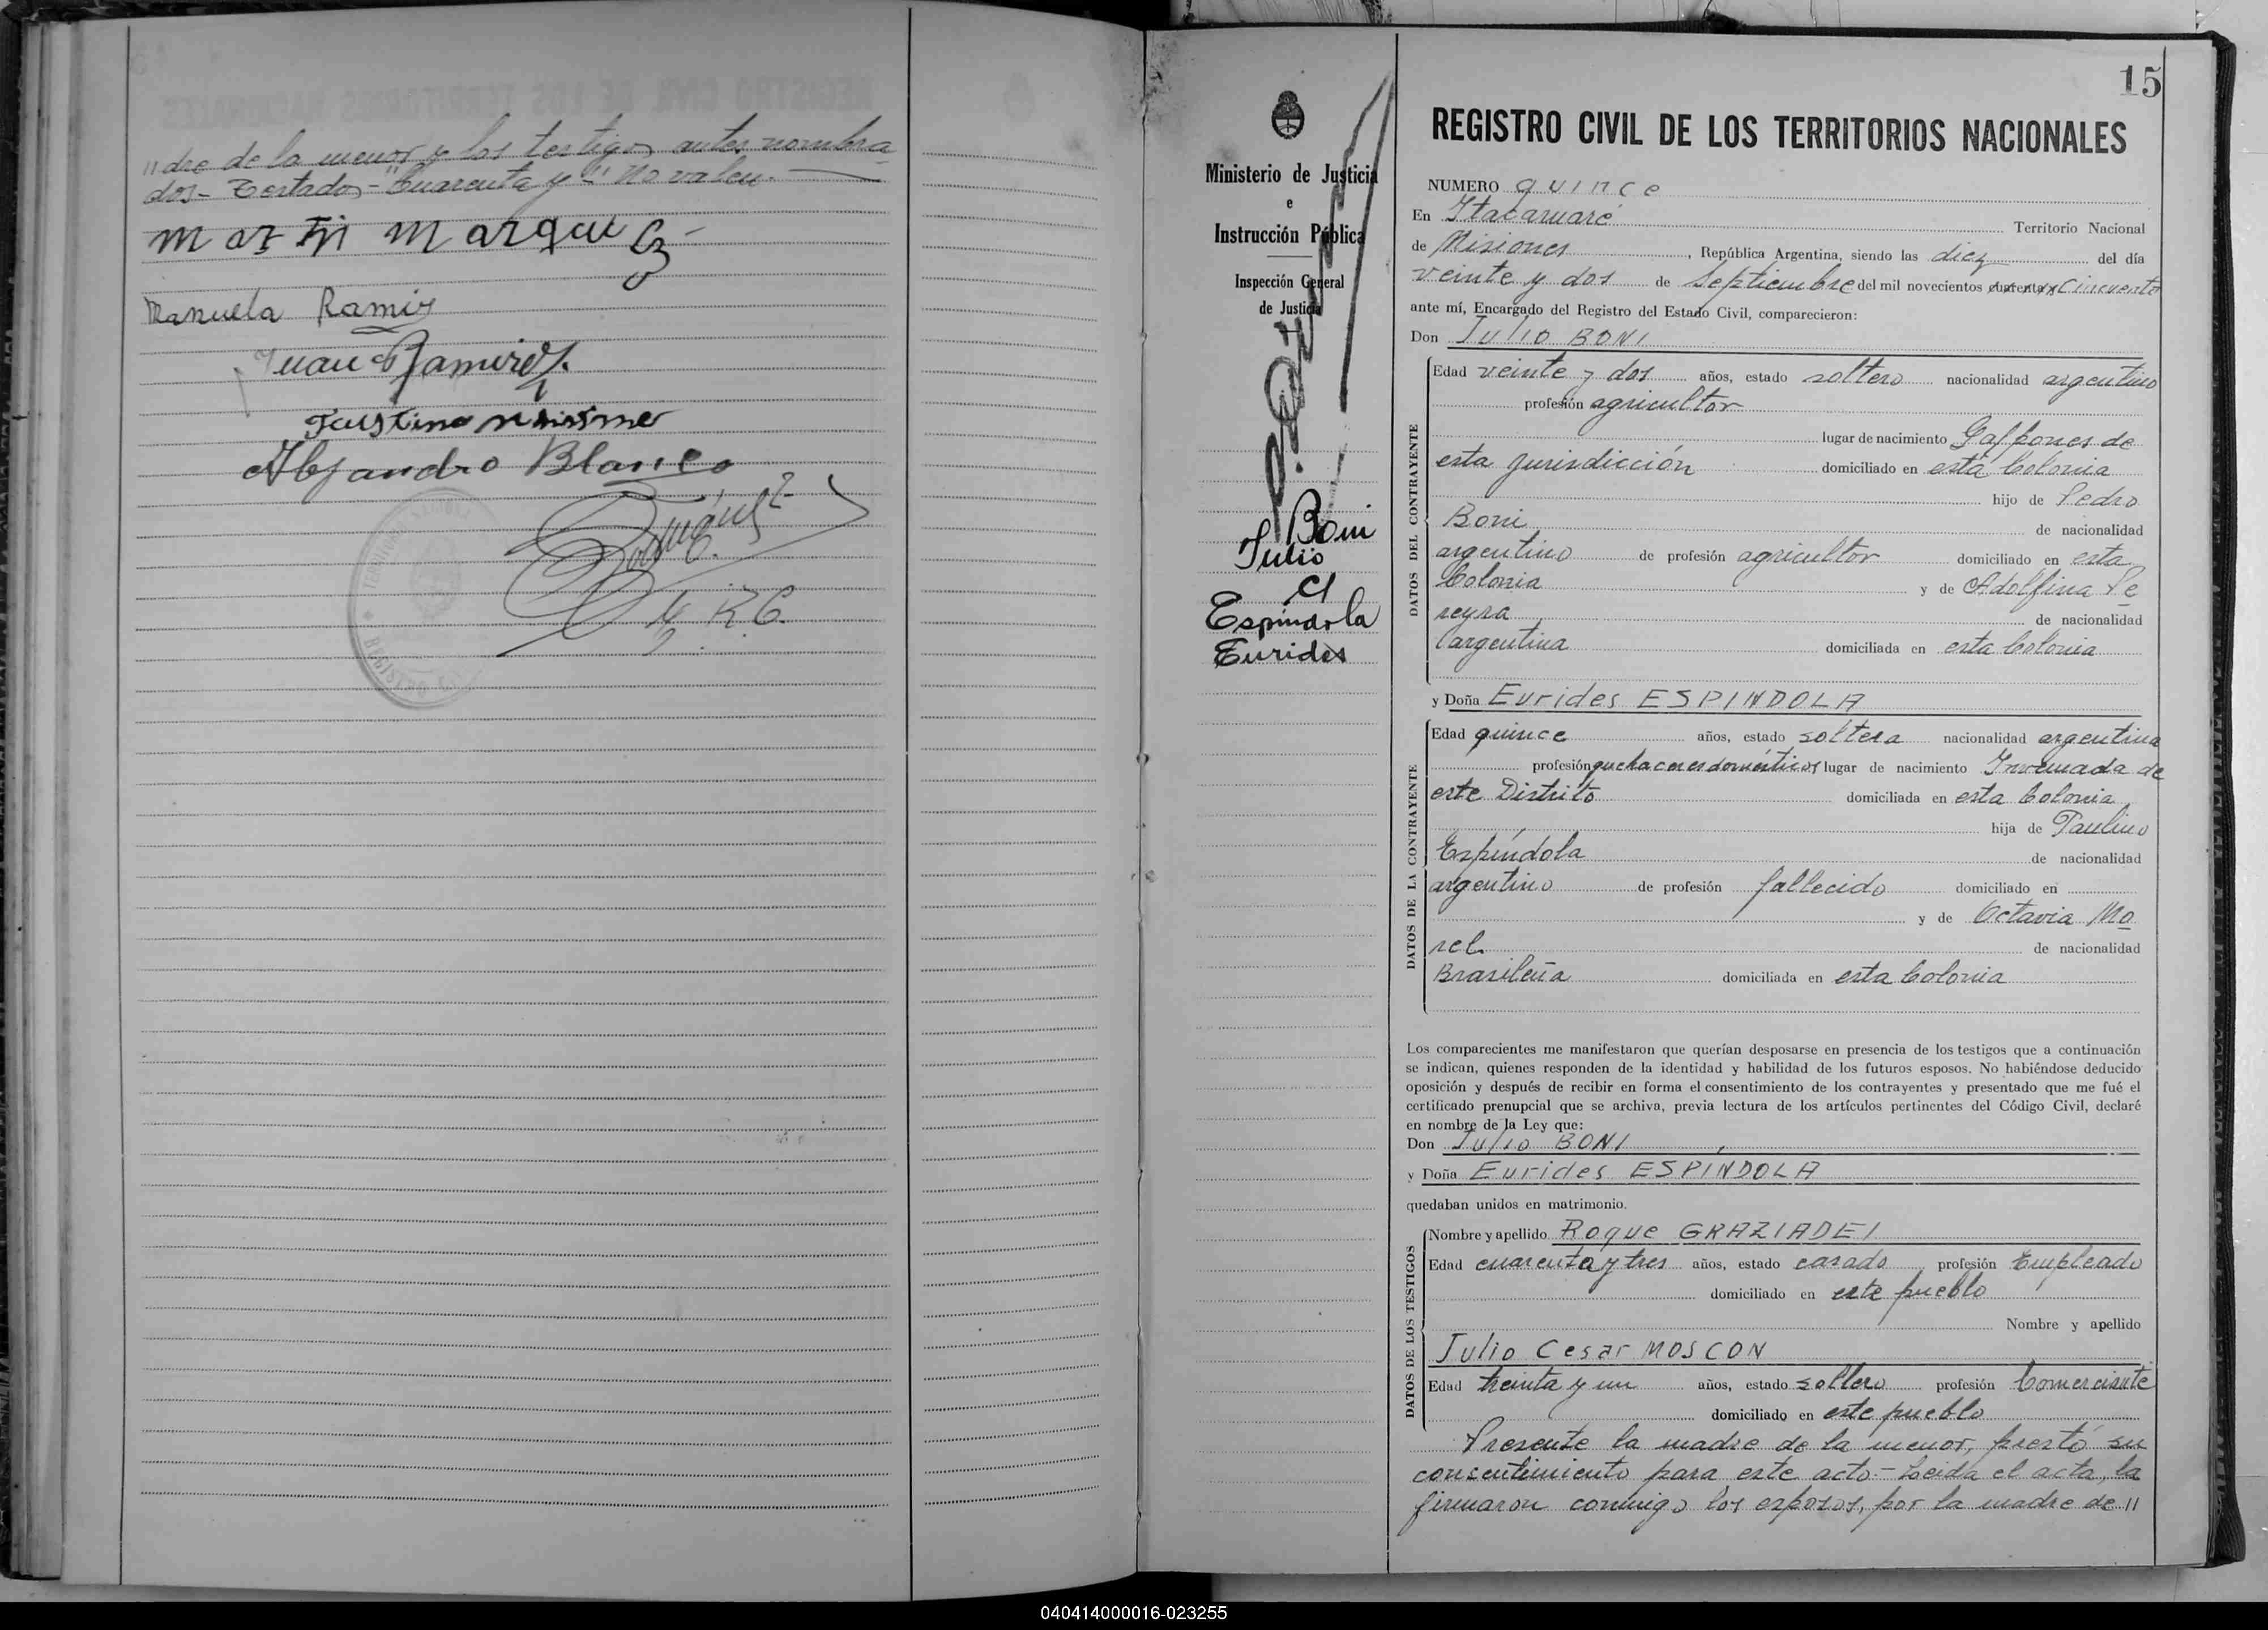 "dre de la menor y los testigos antes nombra
dos- Testados- "Cuarenta y-" No valen.-
Martin Marquez
Manuela Ramirz
Juan Ramirez
Faustino
Alejandro Blanco
J. R. C.
Ministerio de Justicia
e
Instrucción Pública
Inspección General
de Justicia
Boni
Julio
c/
Espíndola
Eurides
15
REGISTRO CIVIL DE LOS TERRITORIOS NACIONALES
NUMERO quince
En Itacaruaré Territorio Nacional
de Misiones, República Argentina, siendo las diez del día
veinte y dos de Septiembre del mil novecientos cuarenta y cincuenta
ante mí, Encargado del Registro del Estado Civil, comparecieron:
Don Julio BONI
DATOS DEL CONTRAYENTE
Edad veinte y dos años, estado soltero nacionalidad argentino
profesión agricultor
lugar de nacimiento Galpones de
esta jurisdicción domiciliado en esta Colonia
hijo de Pedro
Boni de nacionalidad
argentino de profesión agricultor domiciliado en esta
Colonia y de Adolfina Pe
reyra de nacionalidad
argentina domiciliada en esta Colonia
y Doña Eurides ESPINDOLA
DATOS DE LA CONTRAYENTE
Edad quince años, estado soltera nacionalidad argentina
profesión quehaceres domésticos lugar de nacimiento Invernada de
este Distrito domiciliada en esta Colonia
hija de Paulino
Espíndola de nacionalidad
argentino de profesión fallecido domiciliado en
y de Octavia Mo
rel de nacionalidad
Brasileña domiciliada en esta Colonia
Los comparecientes me manifestaron que querían desposarse en presencia de los testigos que a continuación
se indican, quienes responden de la identidad y habilidad de los futuros esposos. No habiéndose deducido
oposición y después de recibir en forma el consentimiento de los contrayentes y presentado que me fué el
certificado prenupcial que se archiva, previa lectura de los artículos pertinentes del Código Civil, declaré
en nombre de la Ley que:
Don Julio BONI
y Doña Eurides ESPINDOLA
quedaban unidos en matrimonio.
DATOS DE LOS TESTIGOS
Nombre y apellido Roque GRAZIADEI
Edad cuarenta y tres años, estado casado profesión Empleado
domiciliado en este pueblo
Nombre y apellido
Julio Cesar MOSCON
Edad treinta y un años, estado soltero profesión Comerciante
domiciliado en este pueblo
Presente la madre de la menor, prestó su
consentimiento para este acto.- Leida el acta, la
firmaron conmigo los esposos, por la madre de "
040414000016-023255